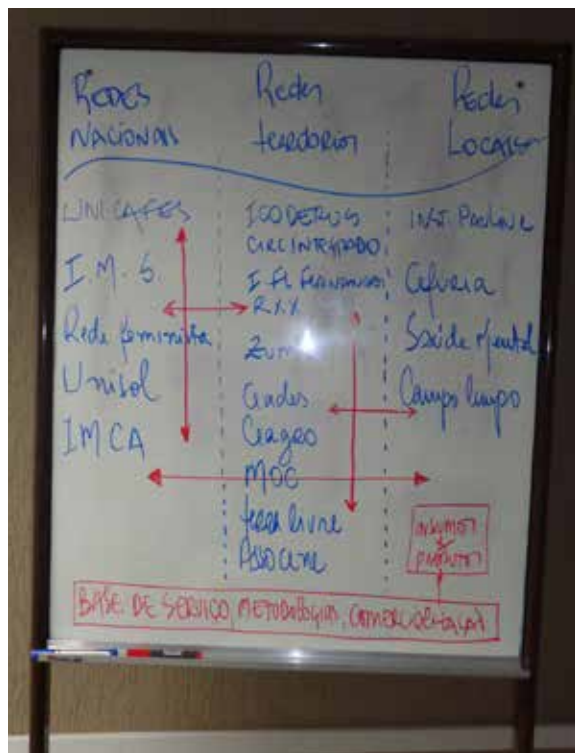 REDES
NACIONAIS
UNICAFES
I.M.S
Rede feminista
Unisol
IMCA
Redes
territorios
CIRC INTEGRADO
I FL FERNANDES
RXX
Zumb
MOC
terra livre
Redes
LOCAIS
INST. PAULINE
Cefuria
Saúde Mental
Campo limpo
INSUMOS
PRODUTOS
BASE DE SERVIÇO, METODOLOGIAS, COMERCIALIZAÇÃO